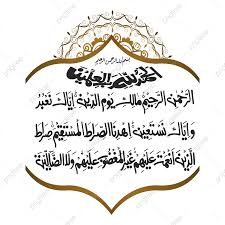 بسم الله الرحمن الرحيم
الحمد لله رب العلمين
الرحمن الرحيم مالك يوم الدين إياك نعبد
وإياك نستعين اهدنا الصراط المستقيم صراط
الذين أنعمت عليهم غير المغضوب عليهم ولا الضالين